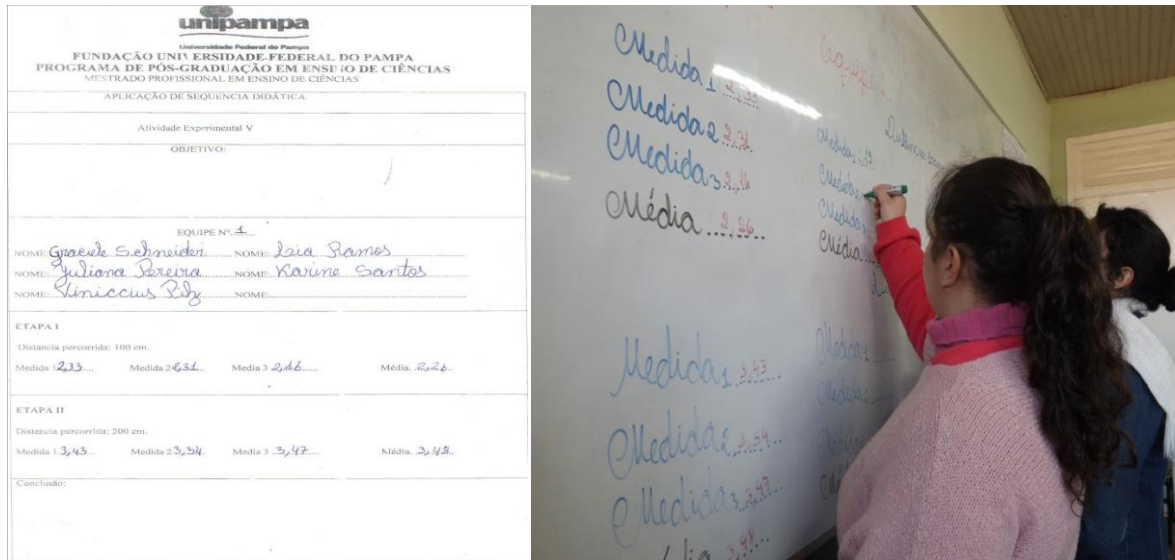 unipampa
Universidade Federal do Pampa
FUNDAÇÃO UNIVERSIDADE FEDERAL DO PAMPA
PROGRAMA DE PÓS-GRADUAÇÃO EM ENSINO DE CIÊNCIAS
MESTRADO PROFISSIONAL EM ENSINO DE CIÊNCIAS
APLICAÇÃO DE SEQUENCIA DIDÁTICA
Atividade Experimental V
OBJETIVO:
EQUIPE Nº 1
NOME: Graciele Schneider NOME: Ramos
NOME: Juliana Pereira NOME: Karine Santos
NOME: Viniccius NOME:
ETAPA I
Distancia percorrida: 100 cm.
Medida 1 2,33 Medida 2 2,31 Media 3 2,16 Média. 2,26
ETAPA II
Distancia percorrida: 200 cm.
Medida 1 3,43 Medida 2 3,54 Media 3 3,47 Média. 3,48
Conclusão:
Medida 1 2,33
Medida 2 2,31
Medida 3 2,16
Média 2,26
Medida 1 3,43
Medida 2 3,54
Medida 3 3,47
3,48
Distância
Medida 1
Medida 2
Medida
Média
Medida 1
Medida 2